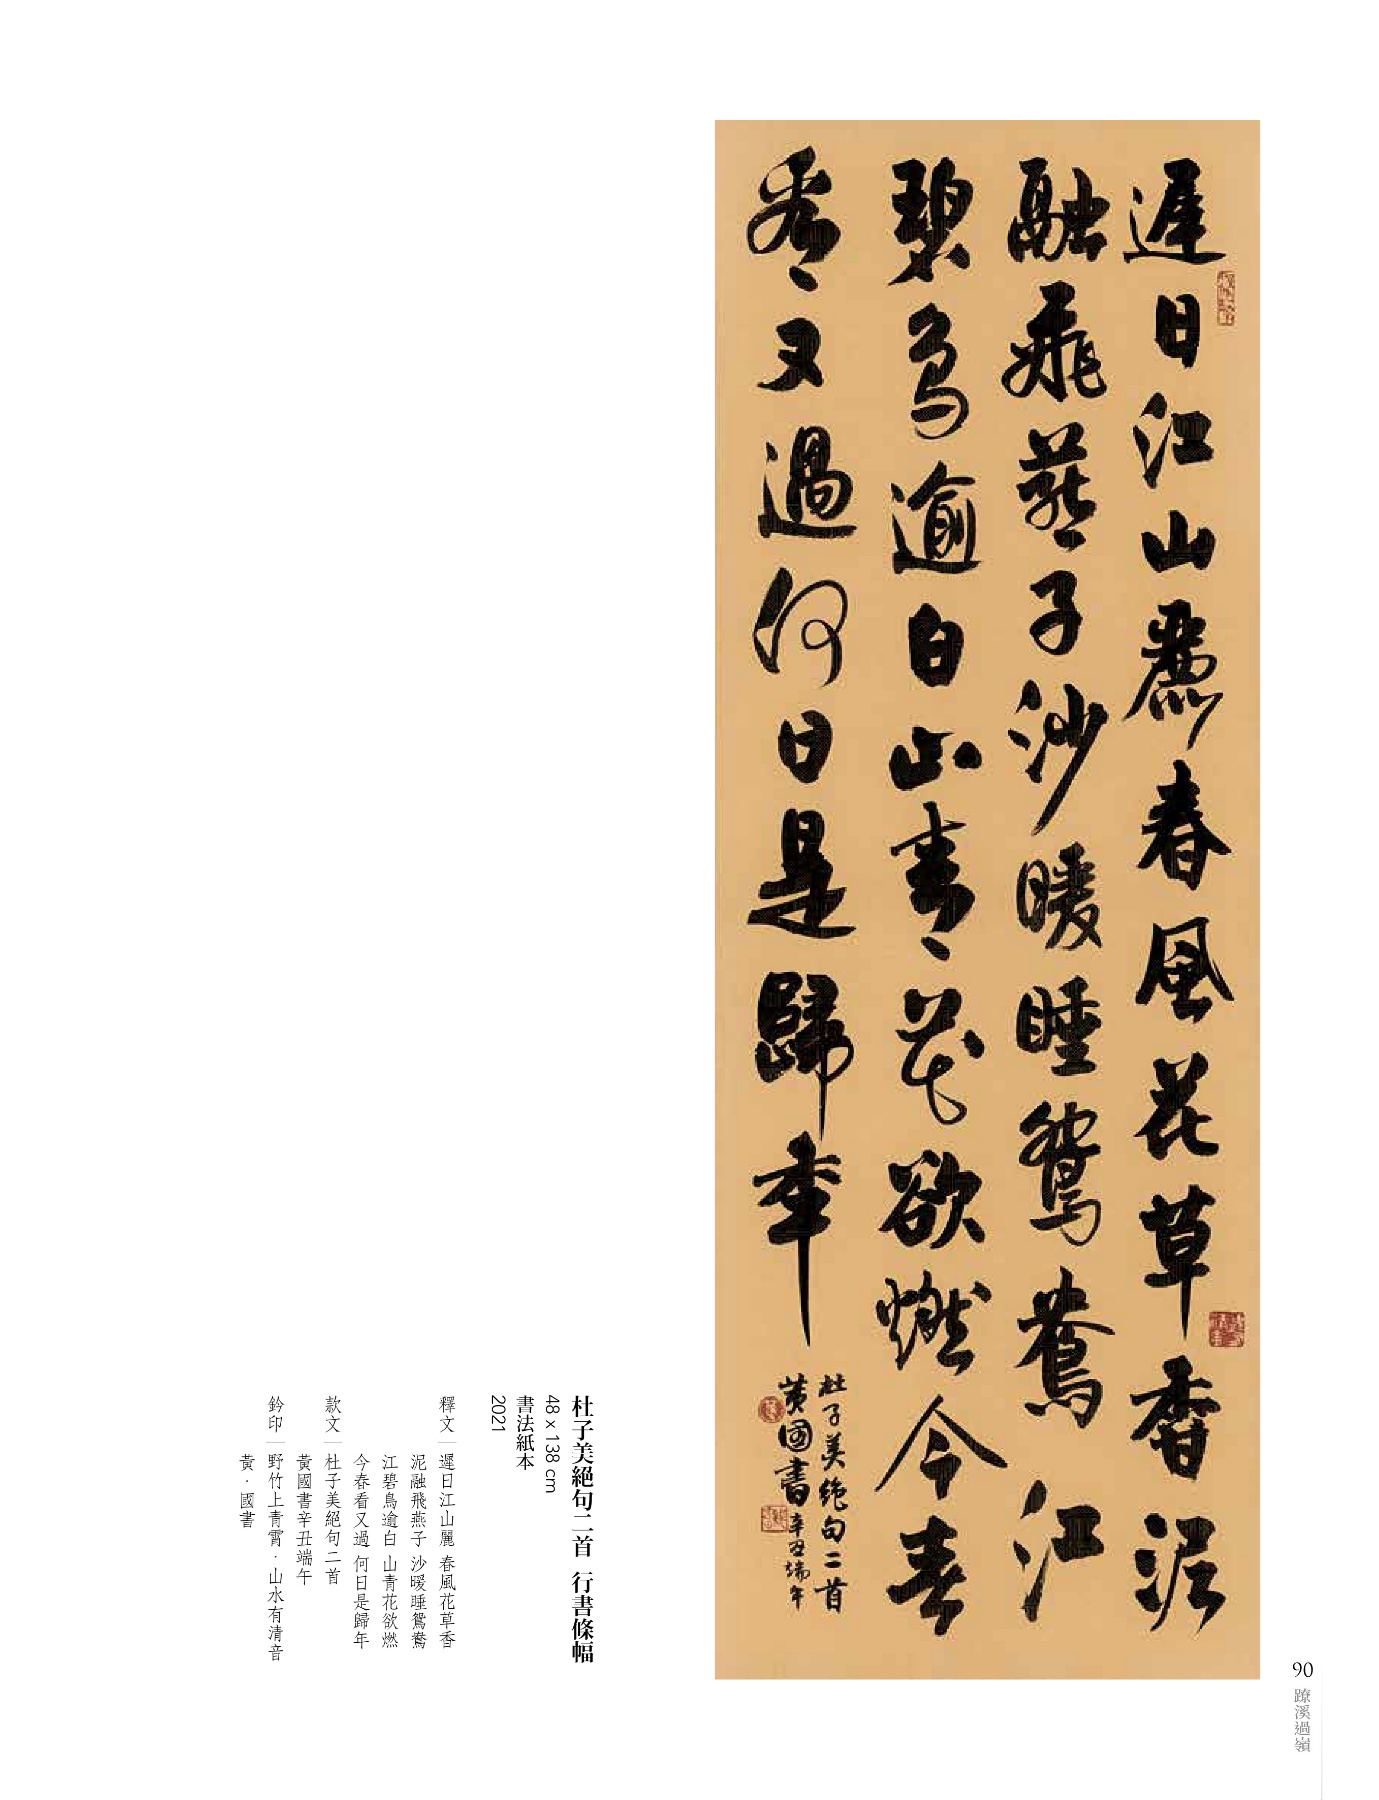 遲日江山麗春風花草香泥
融飛燕子沙暖睡鴛鴦江
碧鳥逾白山青花欲燃今春
看又過何日是歸年
杜子美絕句二首
黃國書辛丑端午
杜子美絕句二首 行書條幅
48 x 138 cm
書法紙本
2021
釋文｜遲日江山麗 春風花草香
泥融飛燕子 沙暖睡鴛鴦
江碧鳥逾白 山青花欲燃
今春看又過 何日是歸年
款文｜杜子美絕句二首
黃國書辛丑端午
鈐印｜野竹上青霄·山水有清音
黃·國書
90
蹽溪過嶺